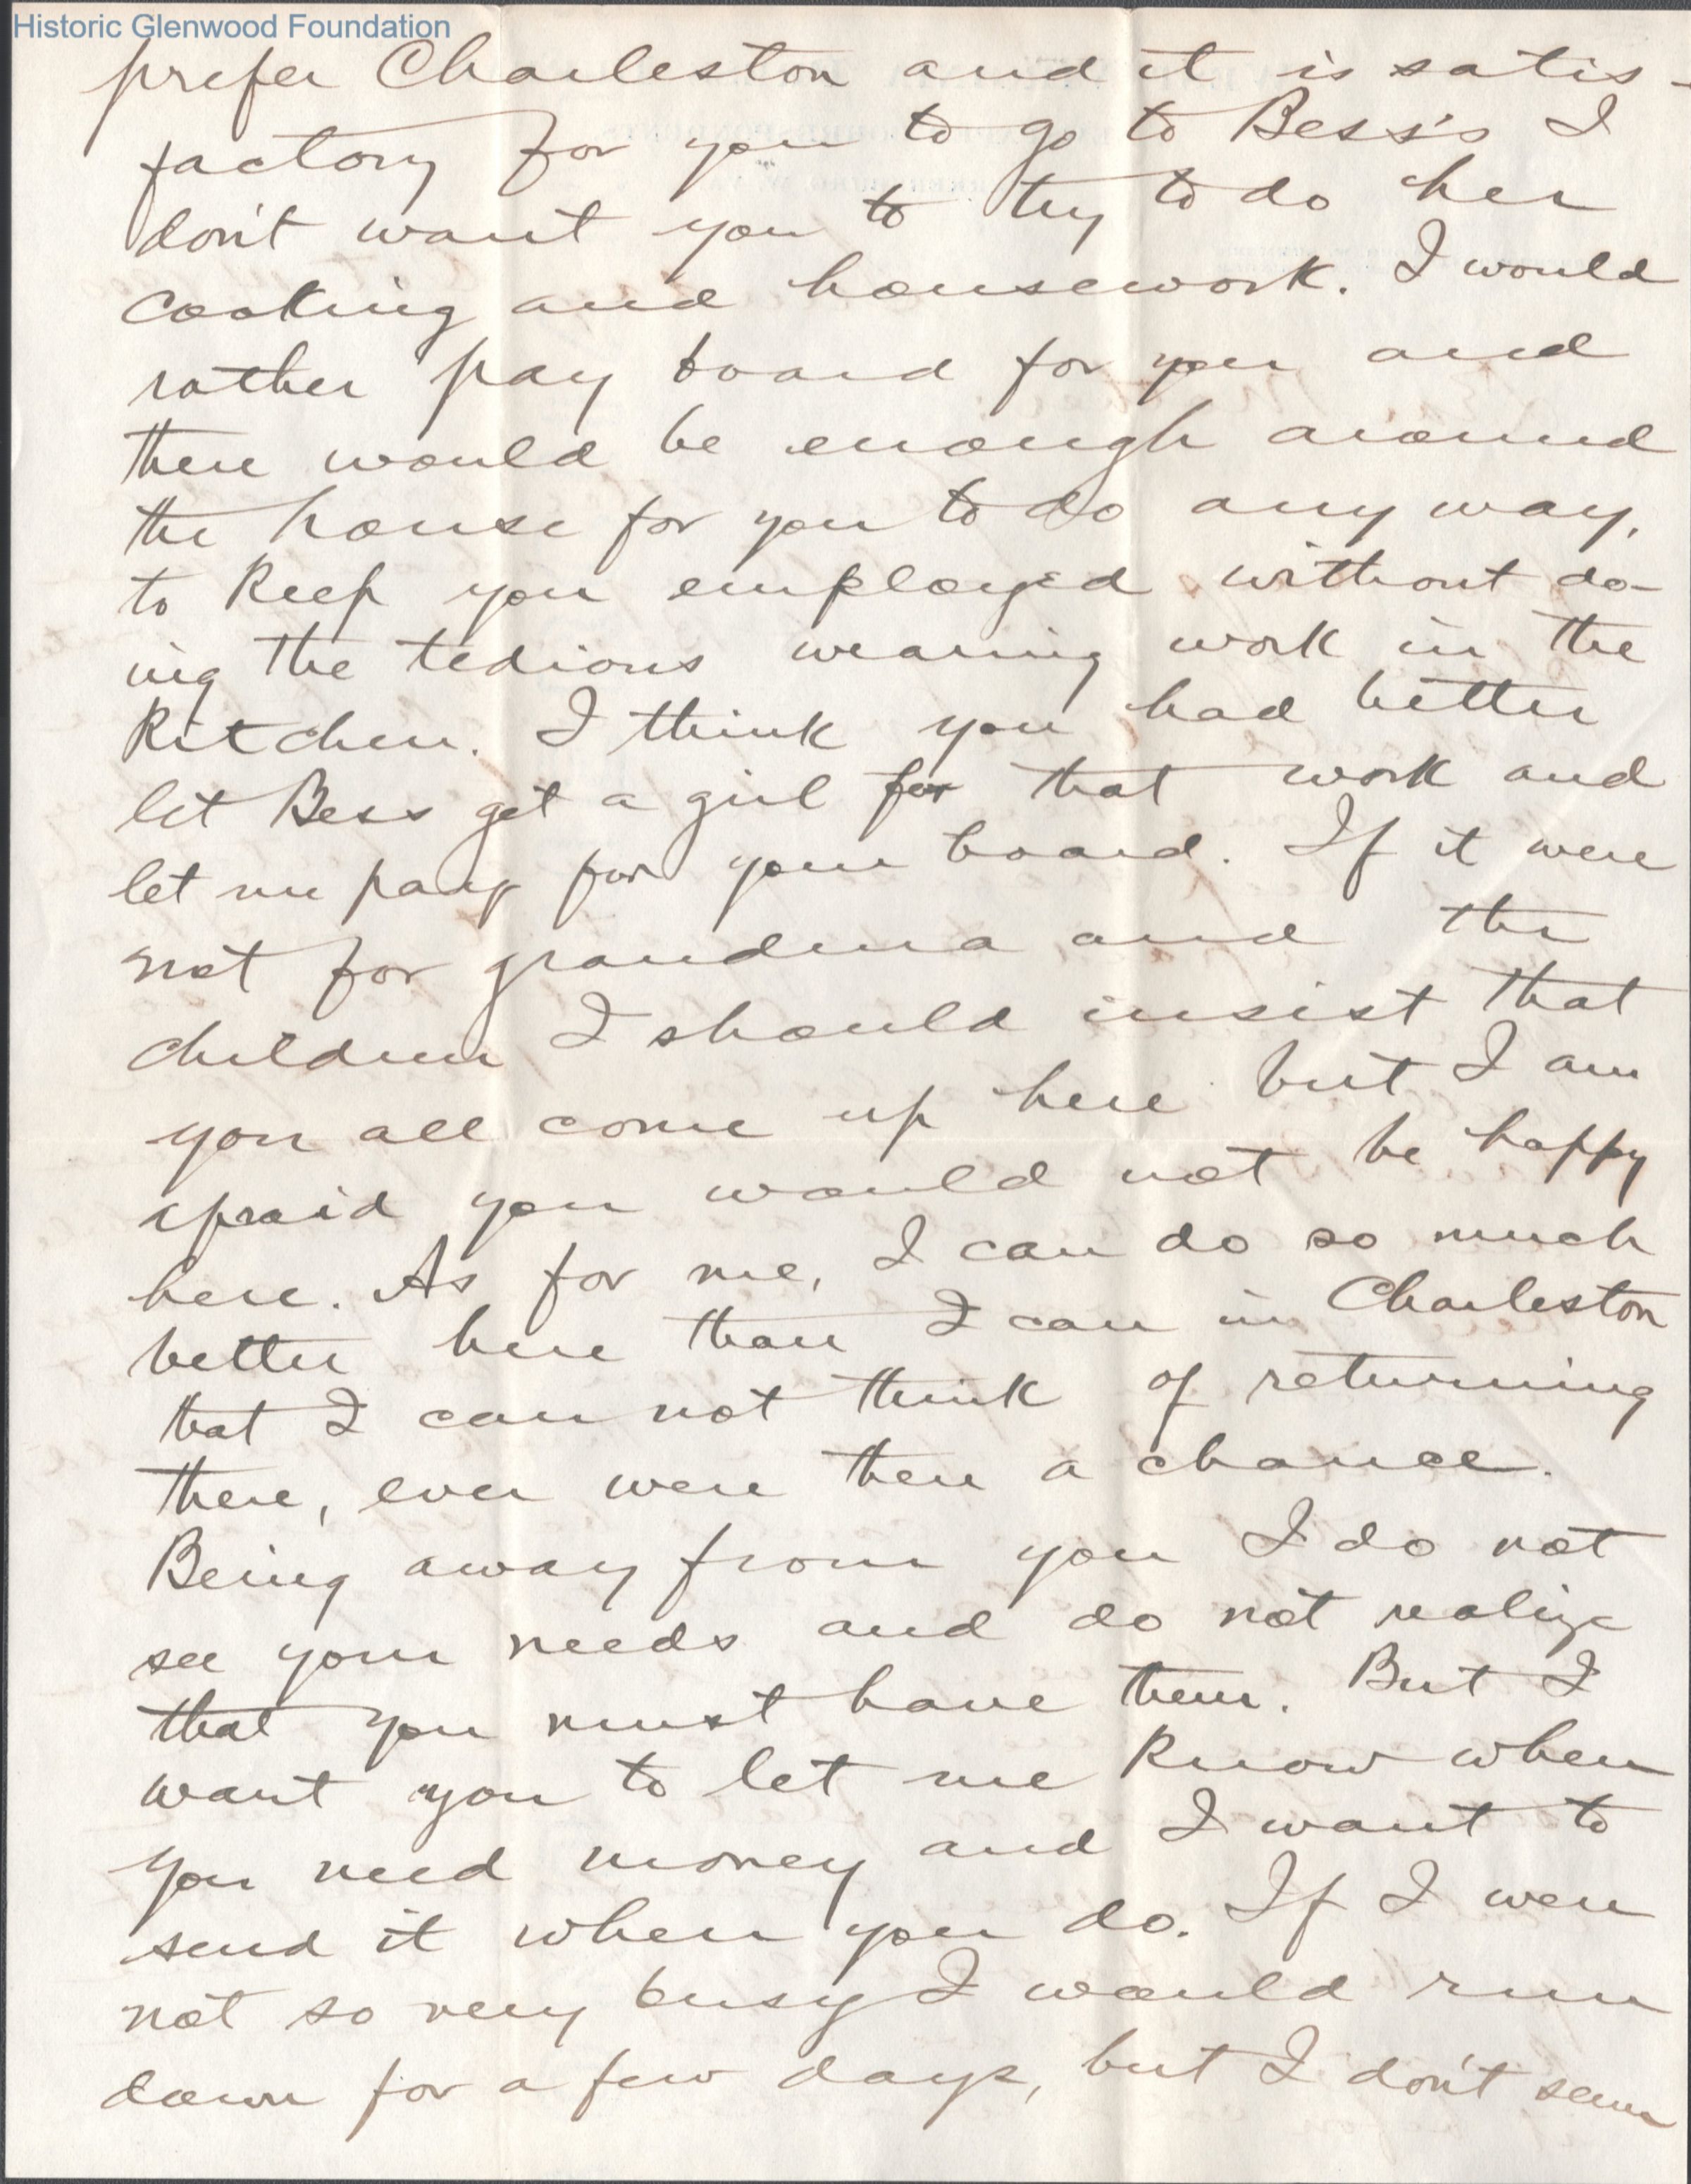 Historic Glenwood Foundation
prefer Charleston and it is satis-
factory for you to go to Bess's I
don't want you to try to do her
cooking and housework. I would
rather pay board for you and
there would be enough around
the house for you to do any way,
to keep you employed without do-
ing the tedious wearing work in the
kitchen. I think you had better
let Bess get a girl for that work and
let me pay for your board. If it were
not for grandma and the
children I should insist that
you all come up here but I am
afraid you would not be happy
here. As for me, I can do so much
better here than I can in Charleston
that I can not think of returning
there, even were there a chance.
Being away from you I do not
see your needs and do not realize
that you must have them. But I
want you to let me know when
you need money and I want to
send it when you do. If I were
not so very busy I would run
down for a few days, but I don't seem